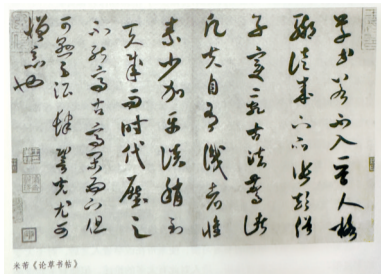 草書若不入晉人格
輒徒成下品張顛俗
子變亂古法驚諸
凡夫自有識者懷
素少加平淡稍到
天成而時代壓之
不能高古高閑而下但
可懸之酒肆䛒光尤可
憎惡也
米芾《论草书帖》